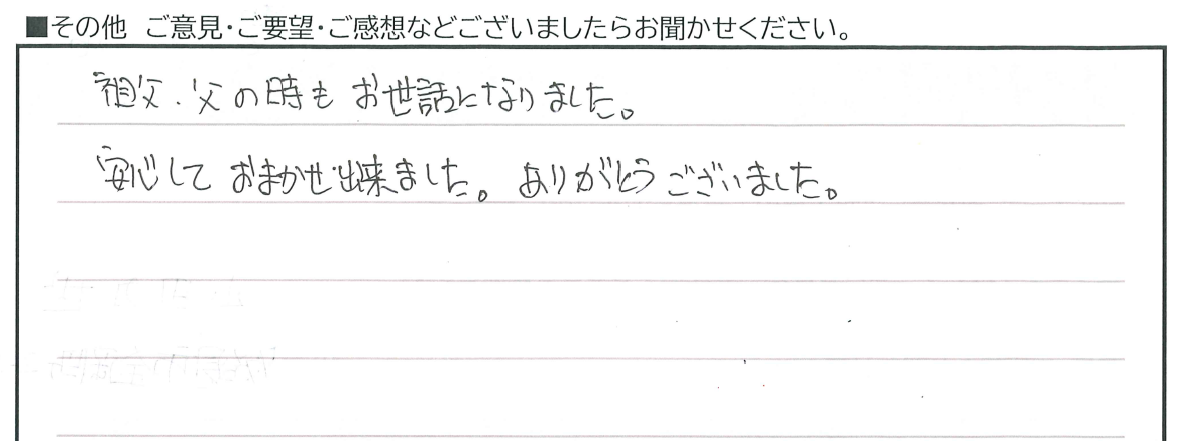 ■その他 ご意見・ご要望・ご感想などございましたらお聞かせください。
祖父、父の時もお世話になりました。
安心しておまかせ出来ました。ありがとうございました。